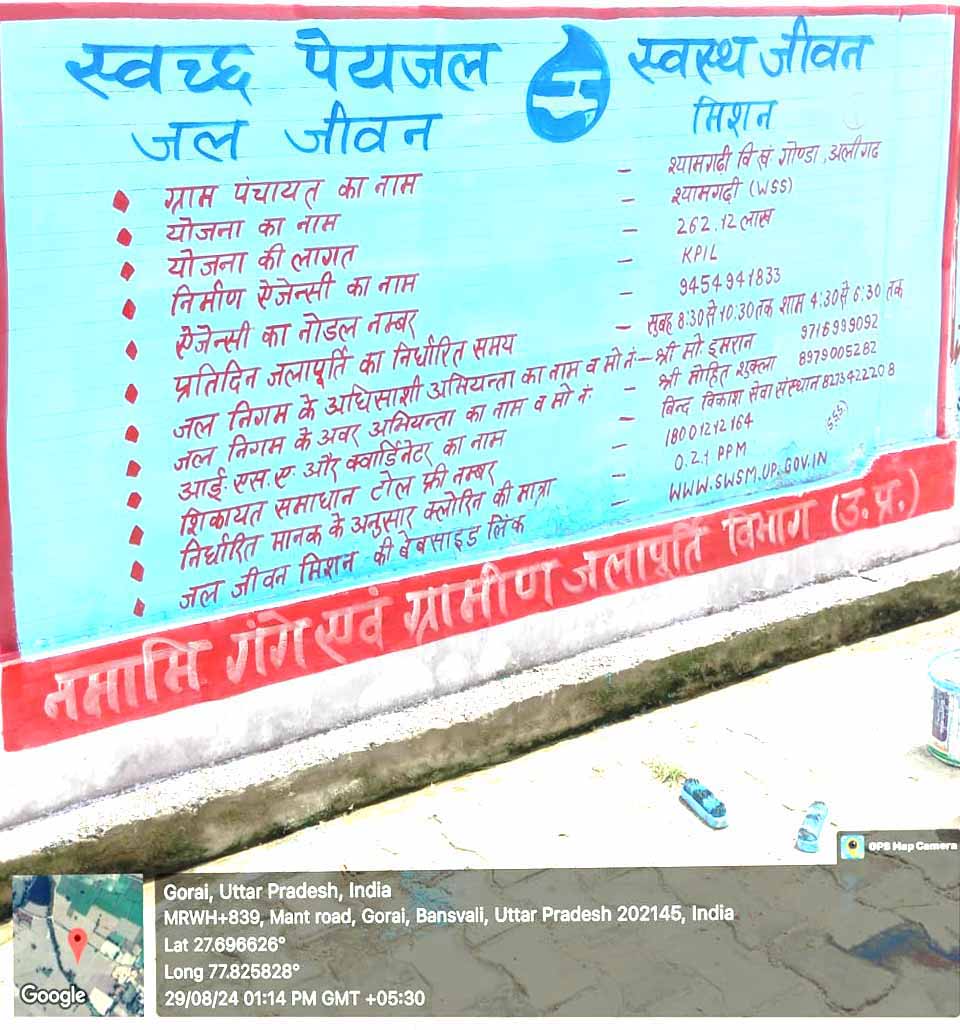 स्वच्छ पेयजल स्वस्थ जीवन
जल जीवन मिशन
ग्राम पंचायत का नाम – श्यामगढी वि.खं गोण्डा, अलीगढ
योजना का नाम – श्यामगढी (WSS)
योजना की लागत – 262.12 लाख
निर्माण ऐजेन्सी का नाम – KPIL
ऐजेन्सी का नोडल नम्बर – 9454941833
प्रतिदिन जलापूर्ति का निर्धारित समय – सुबह 8:30 से 10:30 तक शाम 4:30 से 6:30 तक
जल निगम के अधिसाशी अभियन्ता का नाम व मो नं – श्री मो. इमरान 9716999092
जल निगम के अवर अभियन्ता का नाम व मो नं. श्री मोहित शुक्ला 8979005282
आई.एस.ए. और क्वार्डिनेटर का नाम – बिन्द विकाश सेवा संस्थान 8273422208
शिकायत समाधान टोल फ्री नम्बर – 18001212164
निर्धारित मानक के अनुसार क्लोरिन की मात्रा – 0.21 PPM
जल जीवन मिशन की बेबसाइड लिंक – WWW.SWSM.UP.GOV.IN
नमामि गंगे एवं ग्रामीण जलापूर्ति विभाग (उ.प्र.)
GPS Map Camera
Gorai, Uttar Pradesh, India
MRWH+839, Mant road, Gorai, Bansvali, Uttar Pradesh 202145, India
Lat 27.696626°
Long 77.825828°
29/08/24 01:14 PM GMT +05:30
Google